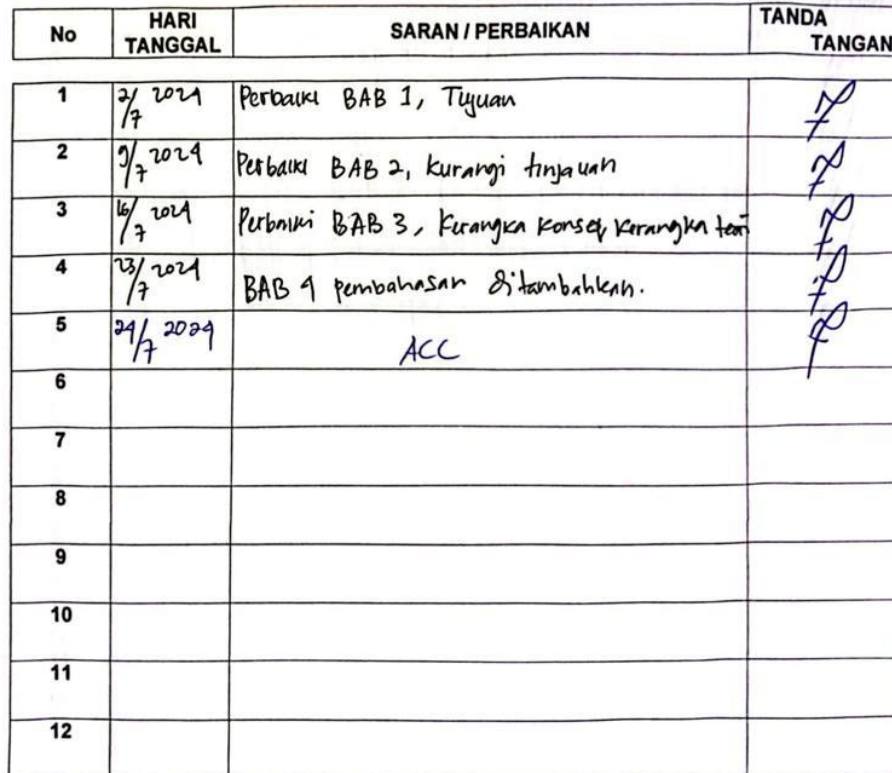 No HARI TANGGAL SARAN / PERBAIKAN TANDA TANGAN
1 2/7 2024 Perbaiki BAB 1, Tujuan
2 9/7 2024 Perbaiki BAB 2, kurangi tinjauan
3 16/7 2024 Perbaiki BAB 3, Kerangka Konsep, Kerangka teori
4 23/7 2024 BAB 4 pembahasan ditambahkan.
5 24/7 2024 ACC
6
7
8
9
10
11
12